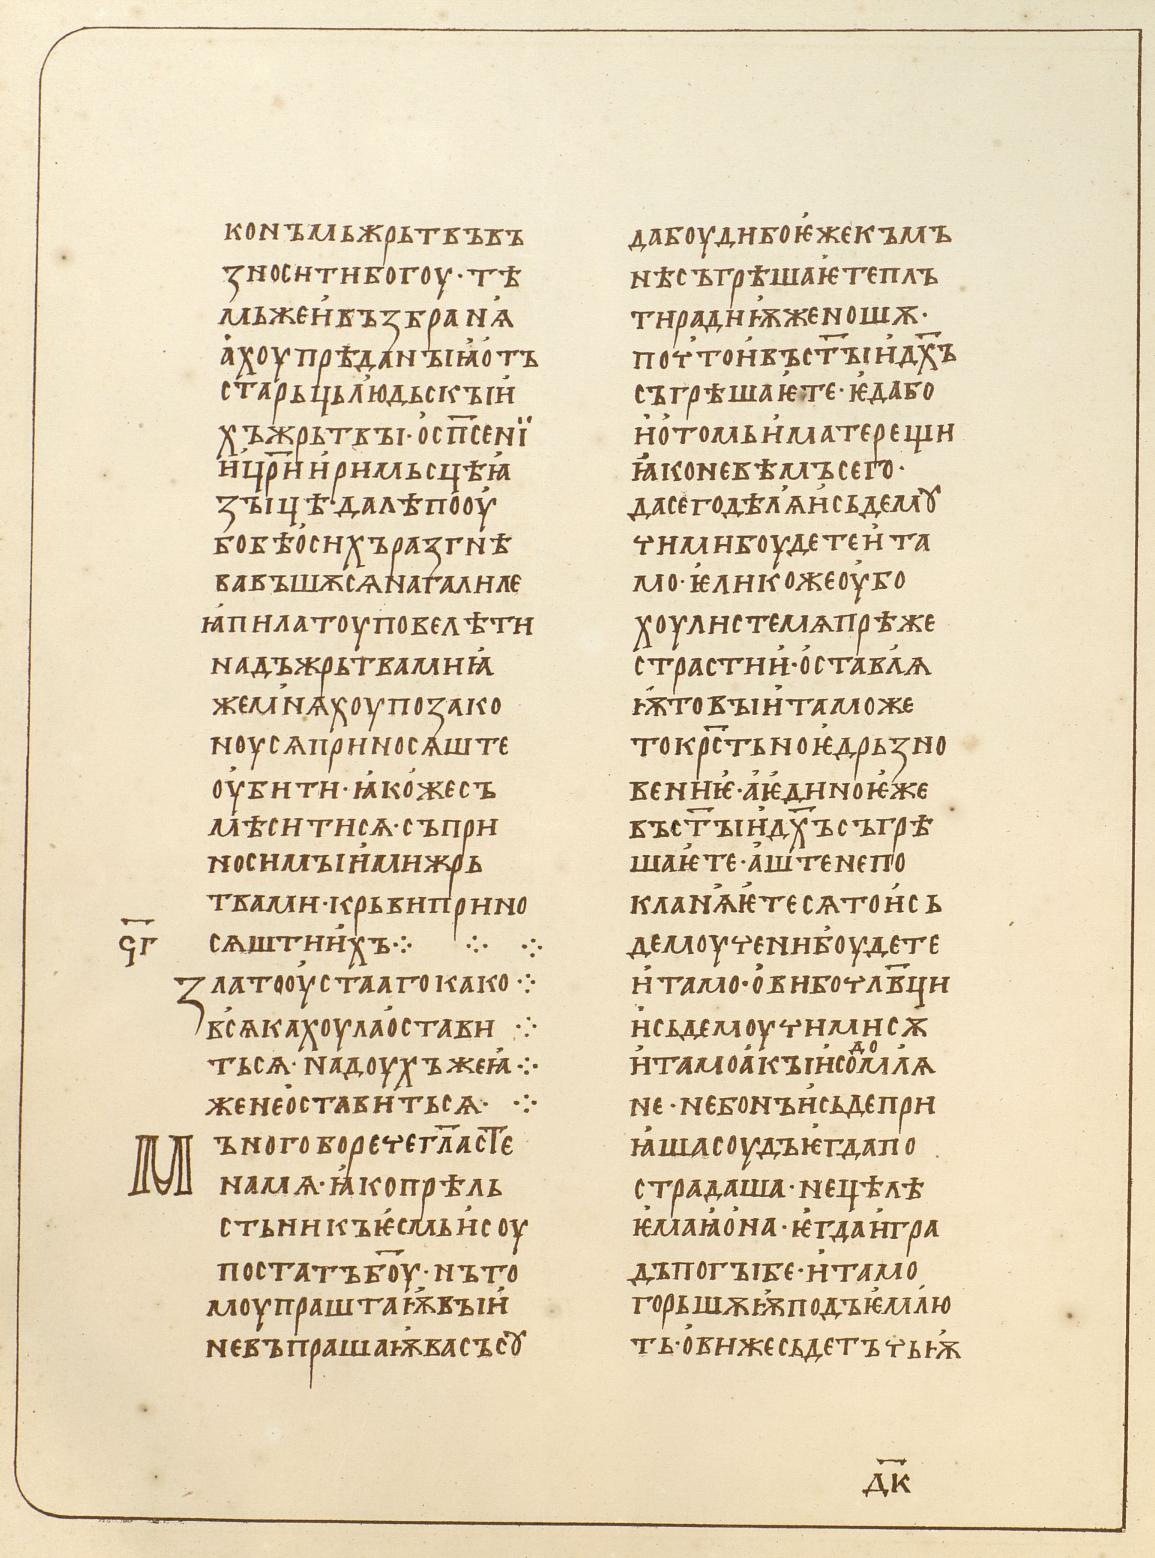 конъмьжрьтвъвъ
ꙁноситибогоу·тѣ
мьжеи҆въꙁбранꙗ
а҆хоупрѣданъꙇꙗ҆отъ
старьцьлюдьскъꙇи
хъжрьтвъꙇ·о҆сп҃сенї
и҆цр҃ии҆римьсцѣꙗ
ꙁъꙇцѣ·далѣпооу
бобѣо҆сихъраꙁгнѣ
вавъшѫсѧнагалиле
ꙗ҆пилатоуповелѣти
надъжрьтвамиꙗ
жемнѧхоупоꙁако
ноусѧприносѧште
оу҆бити·ꙗ҆ко҆жесъ
мѣситисѧ·съпри
носимъꙇи҆мижрь
твами·крьвиприно
ѕ҃г сѧштиихъ·:·
ꙁлатооу҆стаагокако·:·
всѧкахоулао҆стави ·:·
тьсѧ·надоухъжеꙗ҆·:·
женео҆ставитьсѧ· ·:·
Мъногоборечегл҃аст҃е
намѧ·ꙗ҆копрѣль
стьникъѥ҆смьи҆соу
постатъбо҃у·нъто
моупраштаѭ҆въꙇи
невъпрашаѭвасъсꙋ
дабоудибоѥ҆жекъмъ
нѣсъгрѣшаѥ҆теплъ
тирадиѭ҆женошѫ·
почтои҆въст҃ъꙇи҆дх҃ъ
съгрѣшаѥ҆те·ѥ҆дабо
и҆о҆томьи҆матерещи
ꙗ҆коневѣмъсего·
дасегодѣлꙗи҆сьдемꙋ
чимибоудетеи҆та
мо·ѥ҆ликожеоу҆бо
хоулистемѧпрѣже
страстии·о҆ставлꙗ
ѭ҆товъꙇи҆таможе
токрс҃тьноѥ҆дрьꙁно
вениѥ·а҆ѥ҆диноѥ҆же
въст҃ъꙇи҆дх҃ъсъгрѣ
шаѥ҆те·а҆штенепо
кланꙗѥ҆тесѧтои҆сь
демоучени боудете
и҆тамо·о҆вибочл҃вци
и҆сьдемоучимисѫ
и҆тамоа҆къꙇи҆содо҆млꙗ
не·небонъи҆сьдепри
ꙗ҆шасоудъѥ҆гдапо
страдаша·нецѣлѣ
ѥ҆маꙗ҆о҆на·ѥ҆гдаи҆гра
дъпогъꙇбе·и҆тамо
горьшѫѭ҆подъѥ҆млю
ть·о҆вижесьдетъчьѭ
д҃к